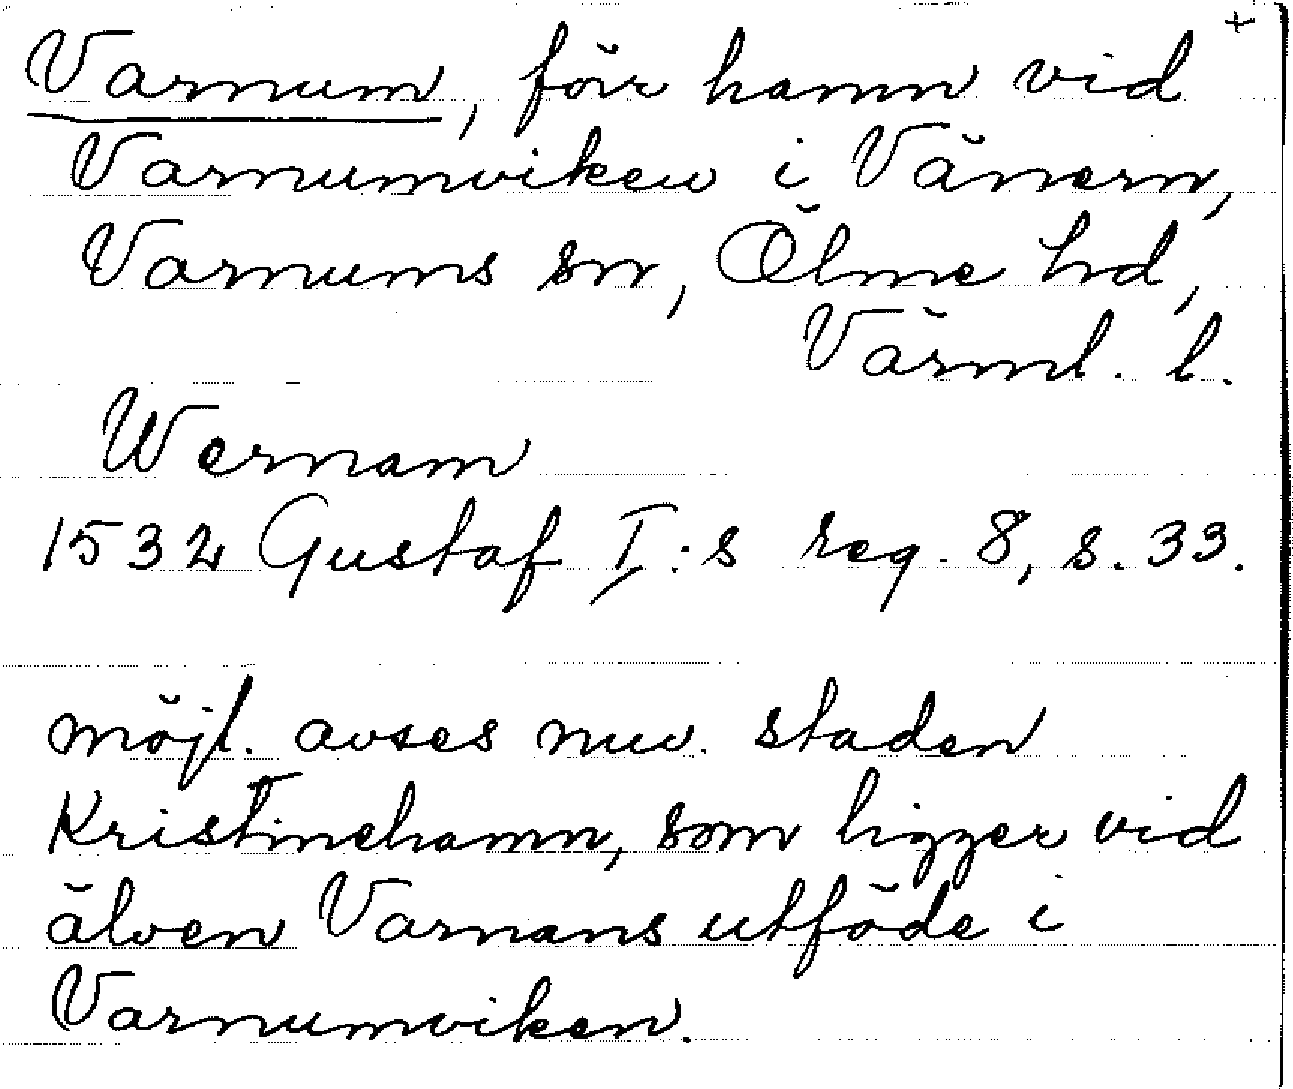 Varnum, förr hamn vid +
Varnumviken i Vänern,
Varnums sn, Ölme hd,
Värml. l.
Wernam
1532 Gustaf I:s reg. 8, s. 33.
möjl. avses nuv. staden
Kristinehamn, som ligger vid
älven Varnans utföde i
Varnumviken.